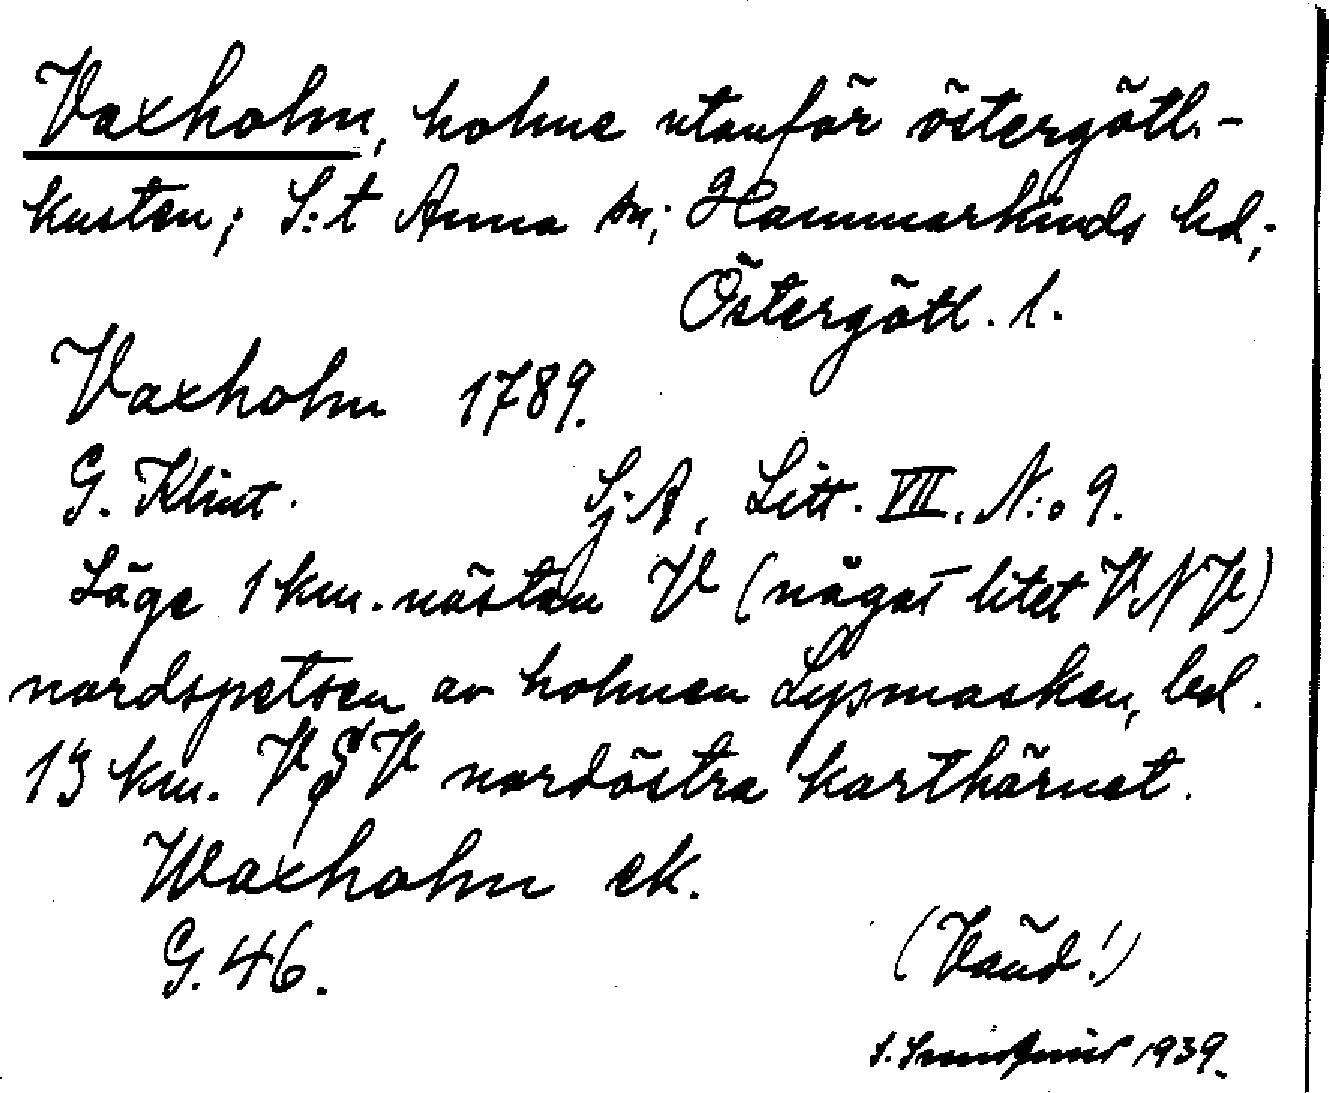 Vaxholm, holme utanför östergötl.-
kusten; S:t Anna sn; Hammarkinds hd;
Östergötl. l.
Vaxholm 1789.
G. Klint. Sj.A, Litt. VIII. N:o 9.
Läge 1 km. nästan V (något litet VNV)
nordspetsen av holmen Lysmasken, bel.
13 km. VSV nordöstra karthörnet.
Waxholm ek.
G. 46. (Vänd!)
S. 1939.